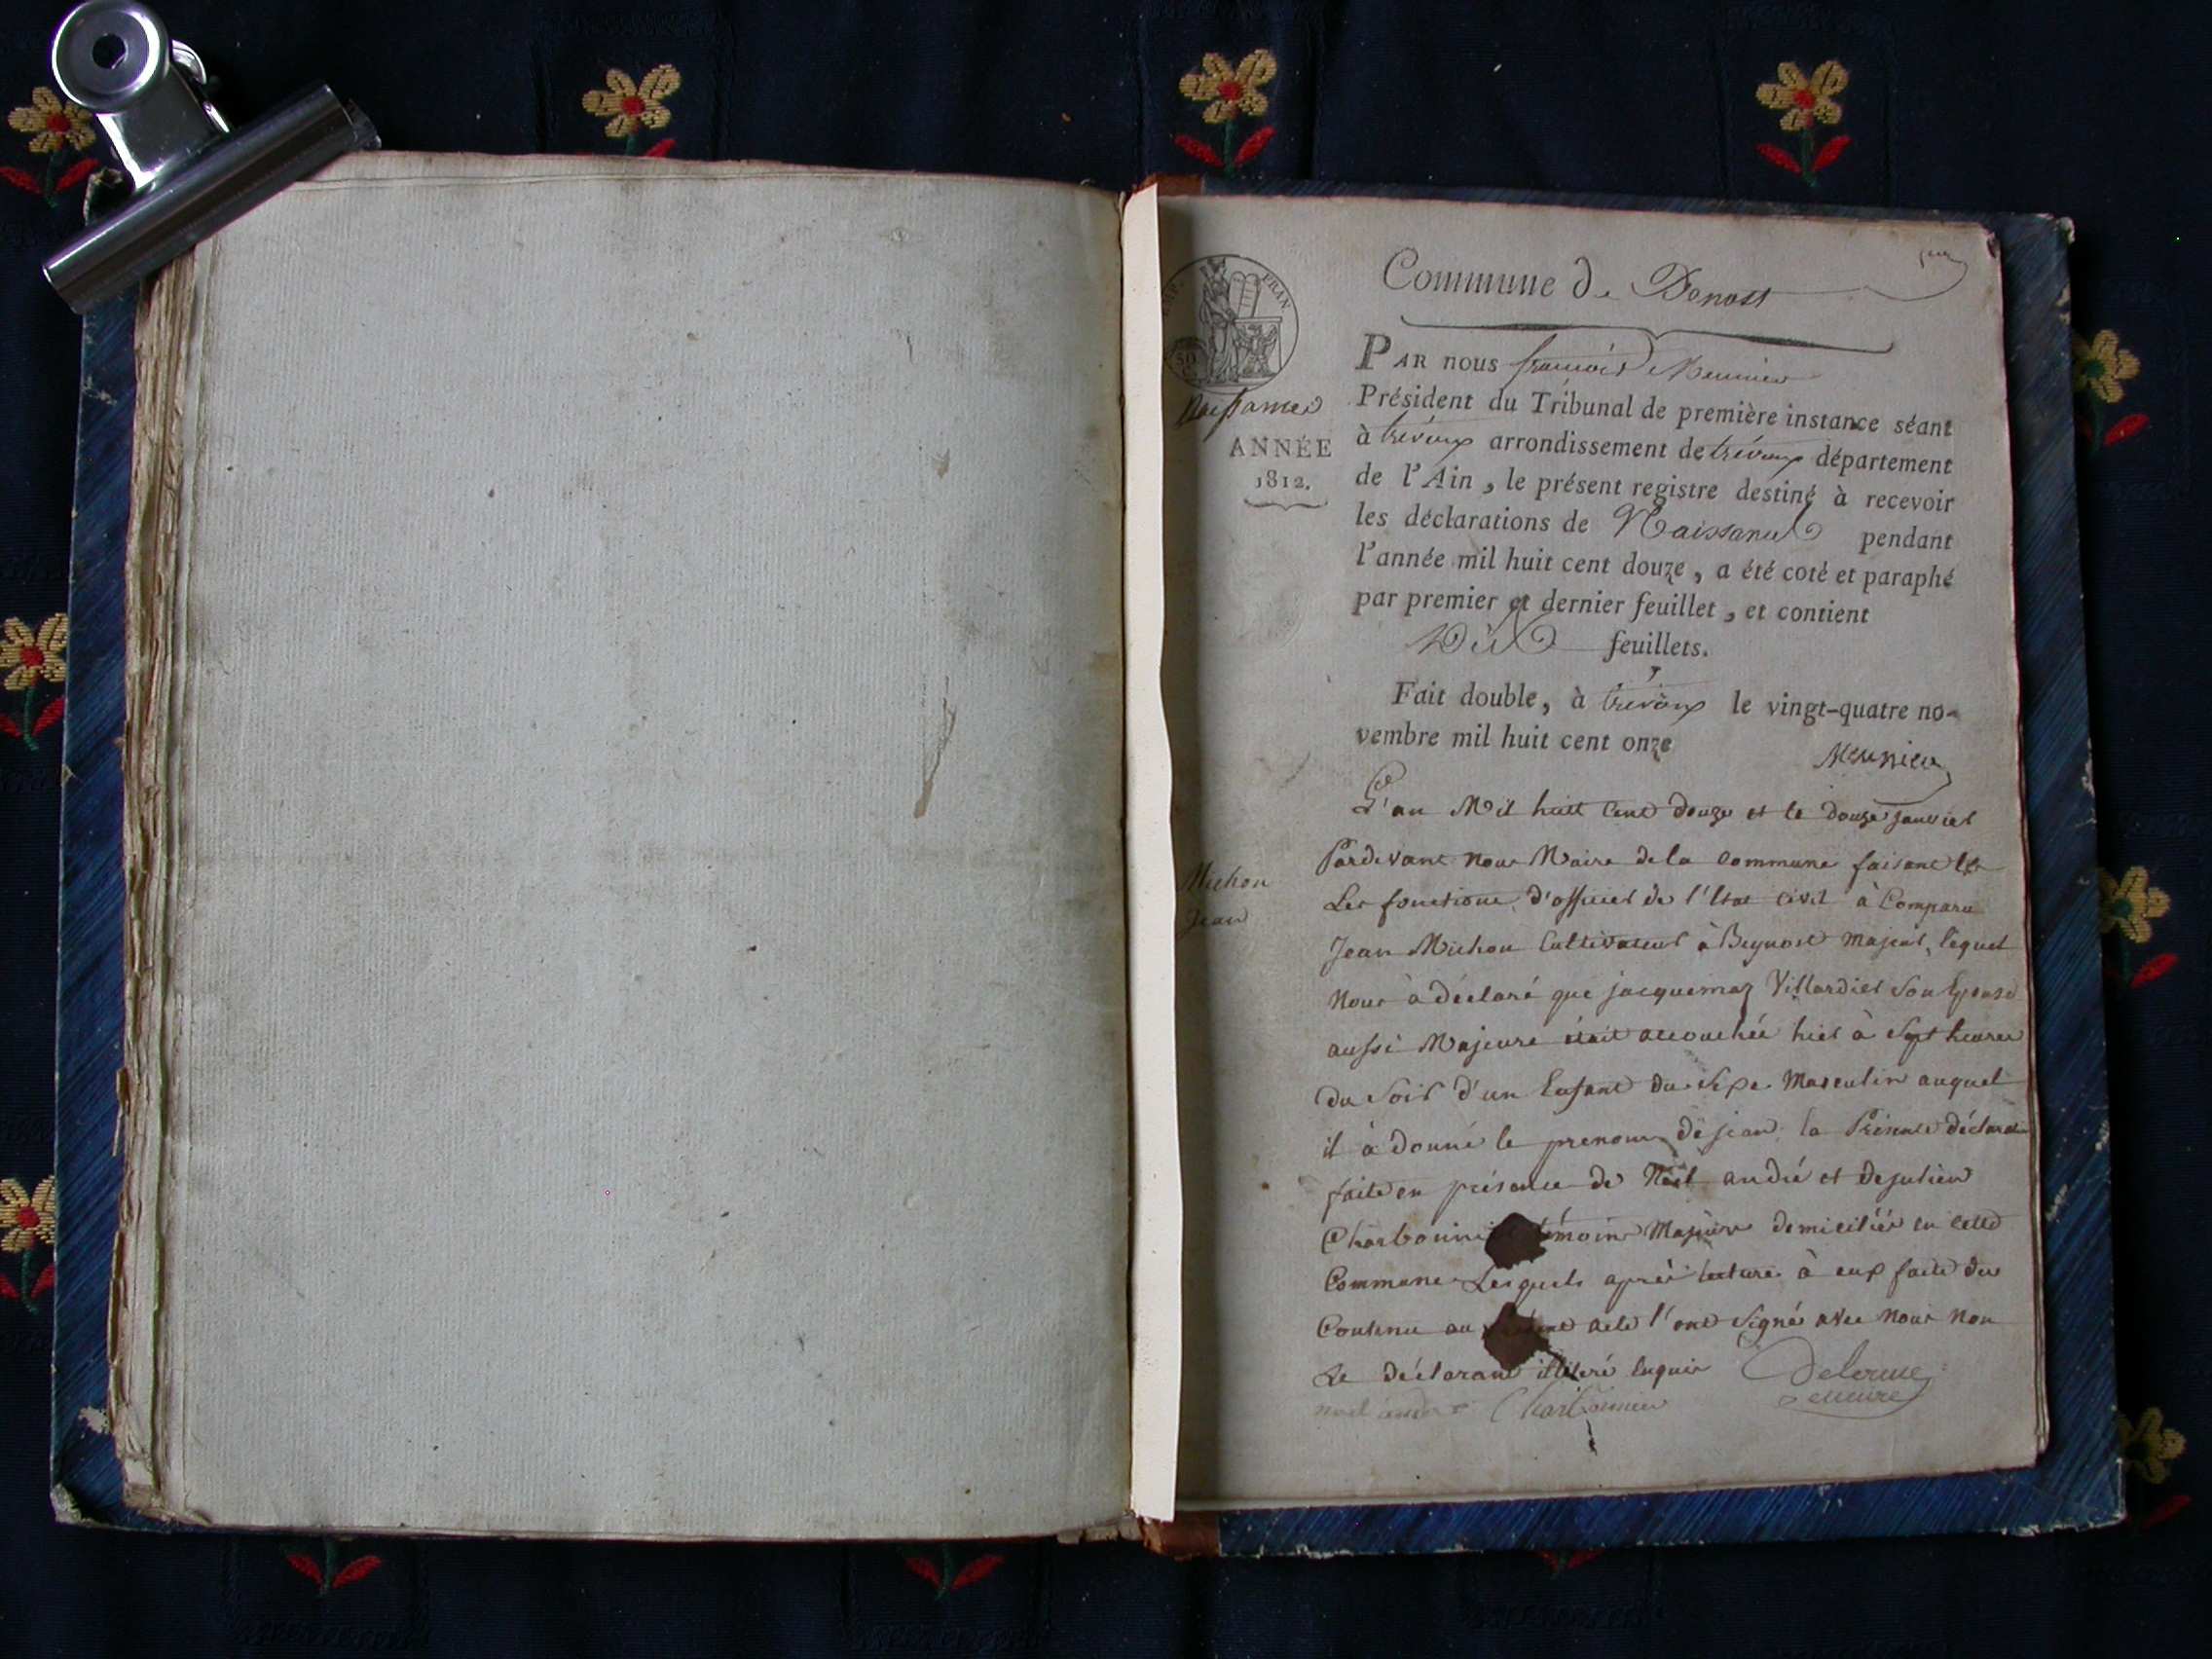 Commune de Benost
EMP. FRAN.
50
Naissances
ANNÉE
1812.
PAR nous françois Meunier
Président du Tribunal de première instance séant
à trévoux arrondissement de trévoux département
de l'Ain, le présent registre destiné à recevoir
les déclarations de Naissances pendant
l'année mil huit cent douze, a été coté et paraphé
par premier et dernier feuillet, et contient
Dix feuillets.
Fait double, à trévoux le vingt-quatre no-
vembre mil huit cent onze
Meunier
L'an Mil huit Cent douze et le douze janvier
Pardevant nous Maire de la commune faisant les
Les fonctions d'officier de l'Etat civil à Comparu
Michon
Jean
Jean Michon Cultivateur à Beynost majeur, lequel
Nous à déclaré que jacquemaz Villardier son Epouse
aussi Majeure était accouchée hier à Sept heures
du Soir d'un Enfant du Sexe Masculin auquel
il à donné le prenom de jean la Présente déclaration
faite en présence de Noël andré et de julien
Charbonnier témoins Majeurs domiciliés en cette
Commune Lesquels après lecture à eux faite du
Contenu au présent acte l'ont Signé avec Nous Non
Le déclarant illitéré Enquis
noel andré Charbonnier